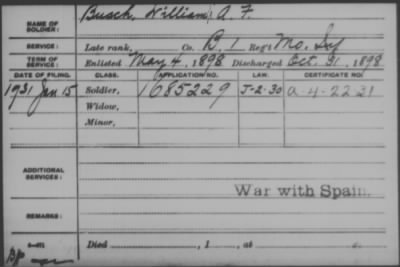 Busch, William A. F.
NAME OF
SOLDIER:
SERVICE: Late rank, Co. B. 1 Reg't Mo. Inf
TERM OF
SERVICE: Enlisted May 4, 1898 Discharged Oct. 31, 1898
DATE OF FILING. CLASS. APPLICATION NO. LAW. CERTIFICATE NO.
1931 Jan 15 Soldier, 1685229 J-2-30 A 4-22 31
Widow,
Minor,
ADDITIONAL
SERVICES:
War with Spain.
REMARKS:
Died , 1 , at